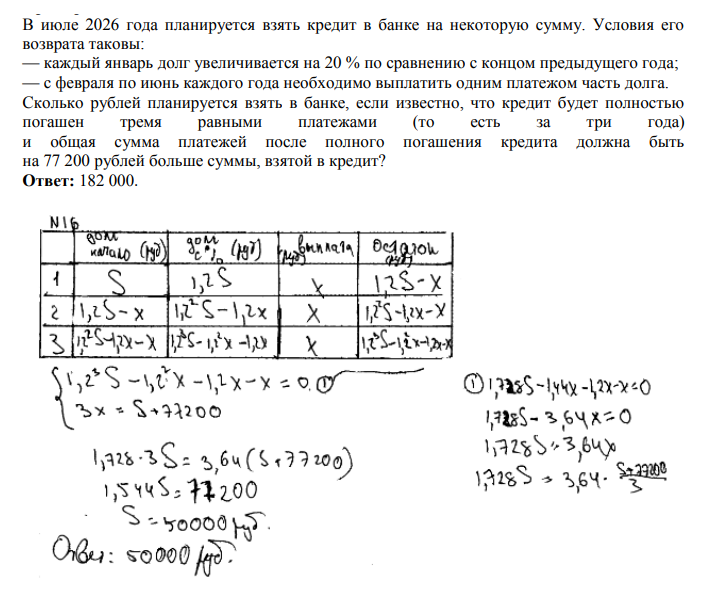 В июле 2026 года планируется взять кредит в банке на некоторую сумму. Условия его
возврата таковы:
— каждый январь долг увеличивается на 20 % по сравнению с концом предыдущего года;
— с февраля по июнь каждого года необходимо выплатить одним платежом часть долга.
Сколько рублей планируется взять в банке, если известно, что кредит будет полностью
погашен тремя равными платежами (то есть за три года)
и общая сумма платежей после полного погашения кредита должна быть
на 77 200 рублей больше суммы, взятой в кредит?
Ответ: 182 000.
N16
долг начало (руб) долг с % (руб) выплата (руб) Остаток (руб)
1 S 1,2S x 1,2S-x
2 1,2S-x 1,2²S-1,2x x 1,2²S-1,2x-x
3 1,2²S-1,2x-x 1,2³S-1,2²x-1,2x x 1,2³S-1,2²x-1,2x-x
1,2³S-1,2²x-1,2x-x=0 ①
3x=S+77200
1,728·3S=3,64(S+77200)
1,544S=77200
S=50000 руб.
Ответ: 50000 руб.
① 1,728S-1,44x-1,2x-x=0
1,728S-3,64x=0
1,728S=3,64x
1,728S=3,64·S+77200/3